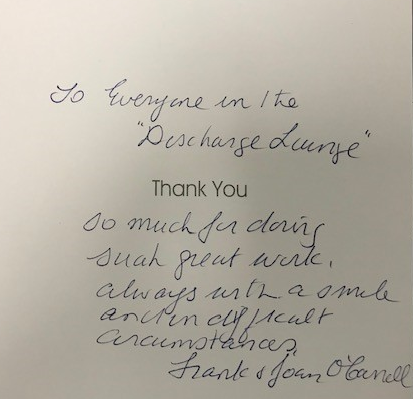 To Everyone in the
"Discharge Lounge"
Thank You
so much for doing
such great work.
always with a smile
and in difficult
circumstances
Frank & Joan O'Carroll